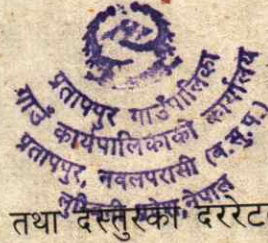 प्रतापपुर गाउँपालिका
गाउँ कार्यपालिकाको कार्यालय
प्रतापपुर, नवलपरासी (ब.सु.प.)
नेपाल
तथा दस्तुरको दररेट